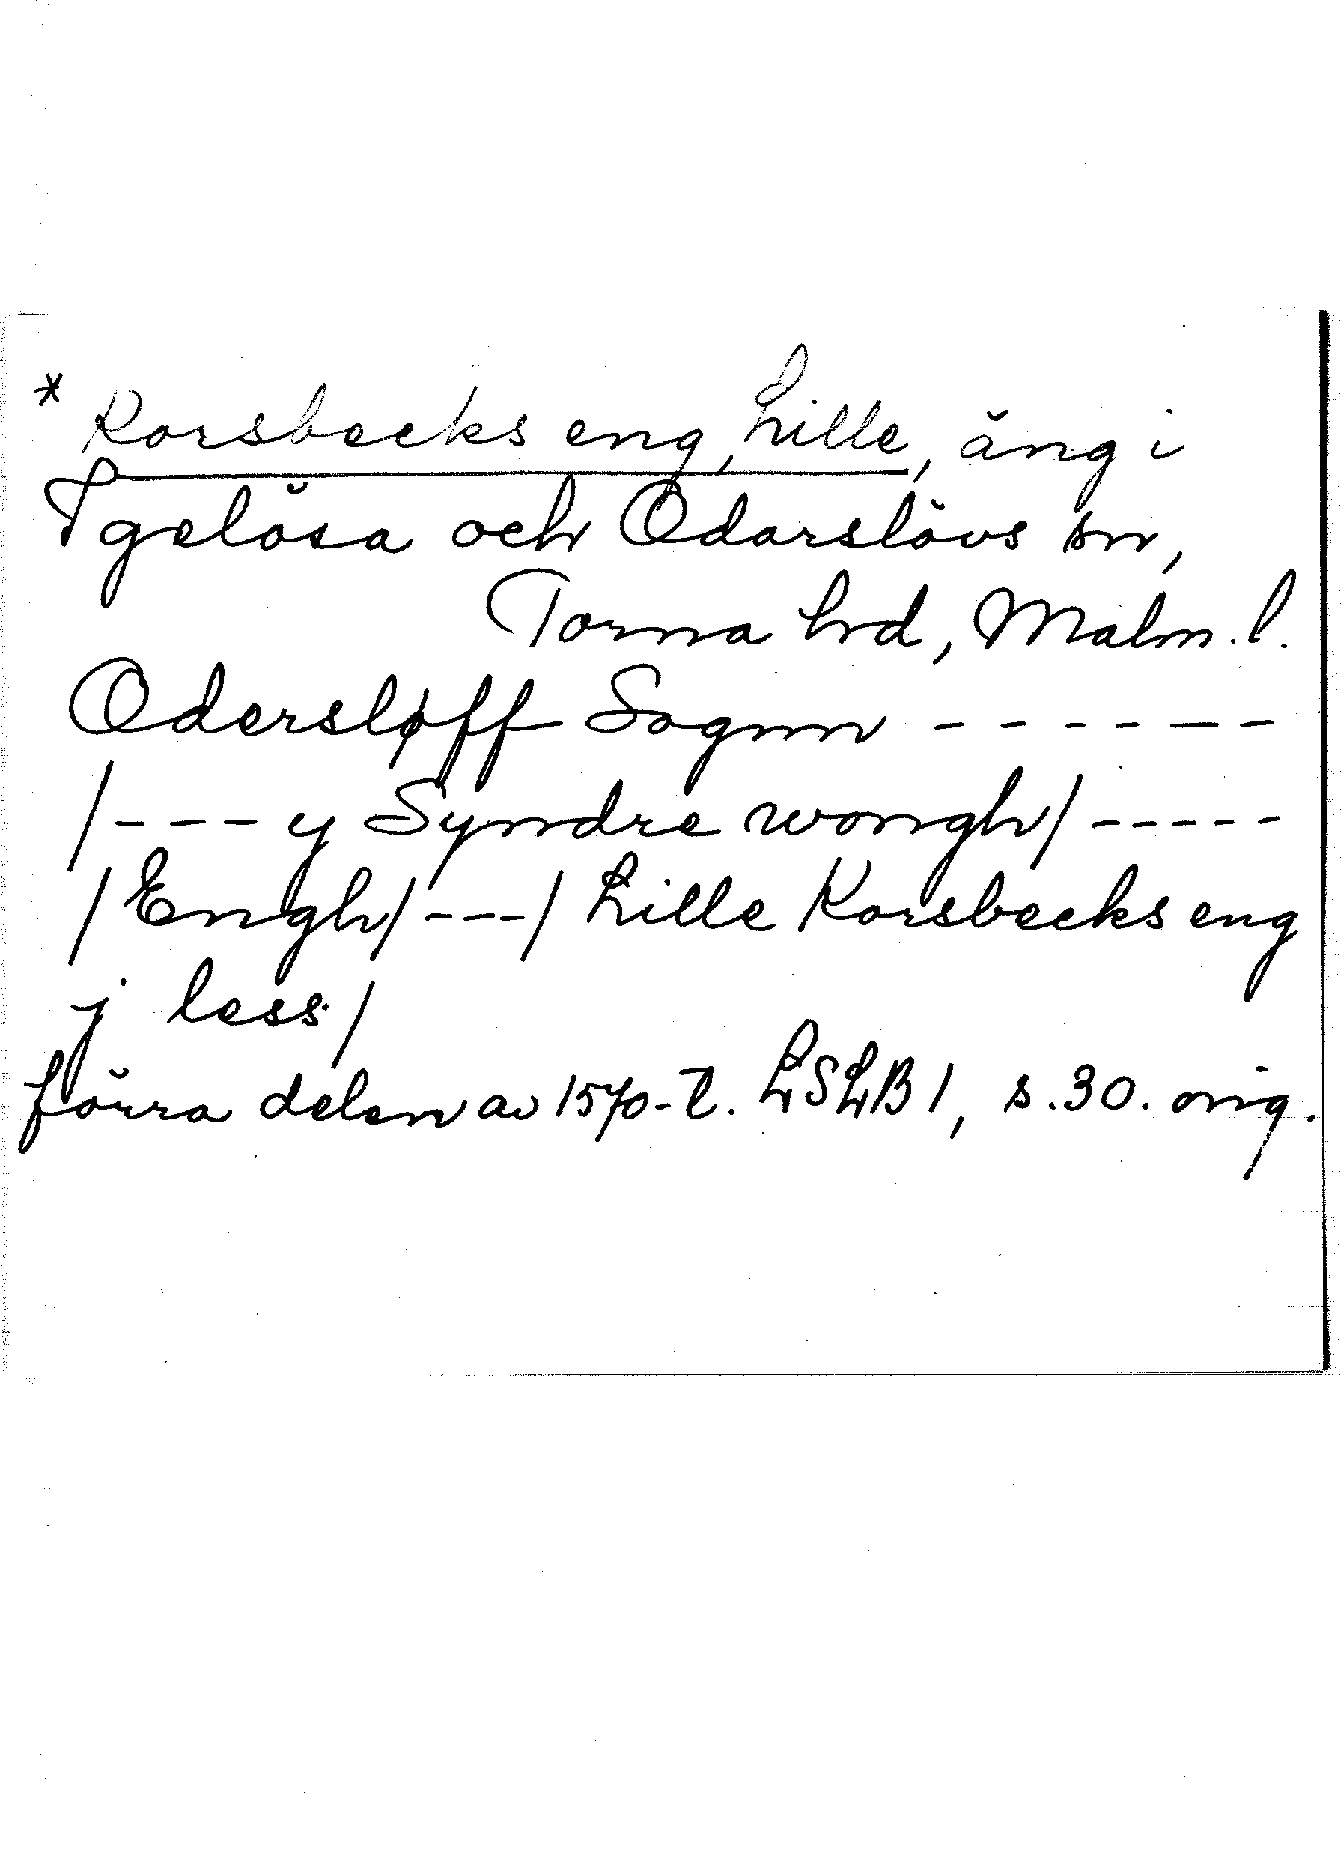 * Korsbecks eng, Lille, äng i
Igelösa och Odarslövs sn,
Torna hrd, Malm. l.
Odersløff Sognn - - - - - - -
/- - - y Syndre wongh/ - - - - -
/Engh/ - - - / Lille Korsbecks eng
j less/
förra delen av 1570-t. LSLB 1, s. 30. orig.